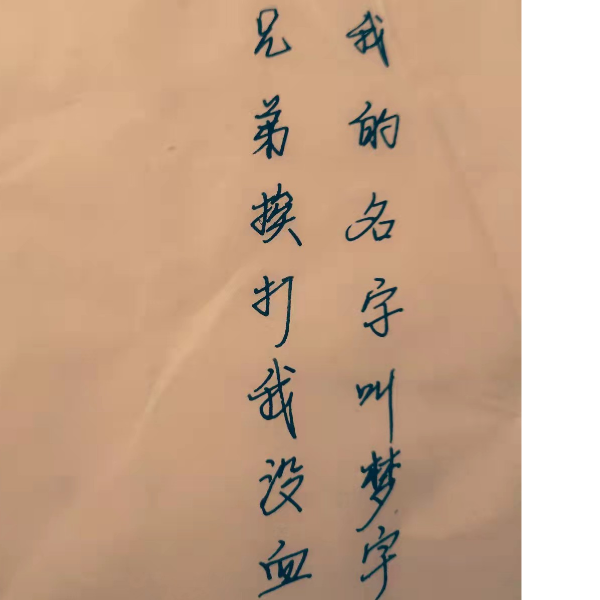 我的名字叫梦字
兄弟挨打我没血